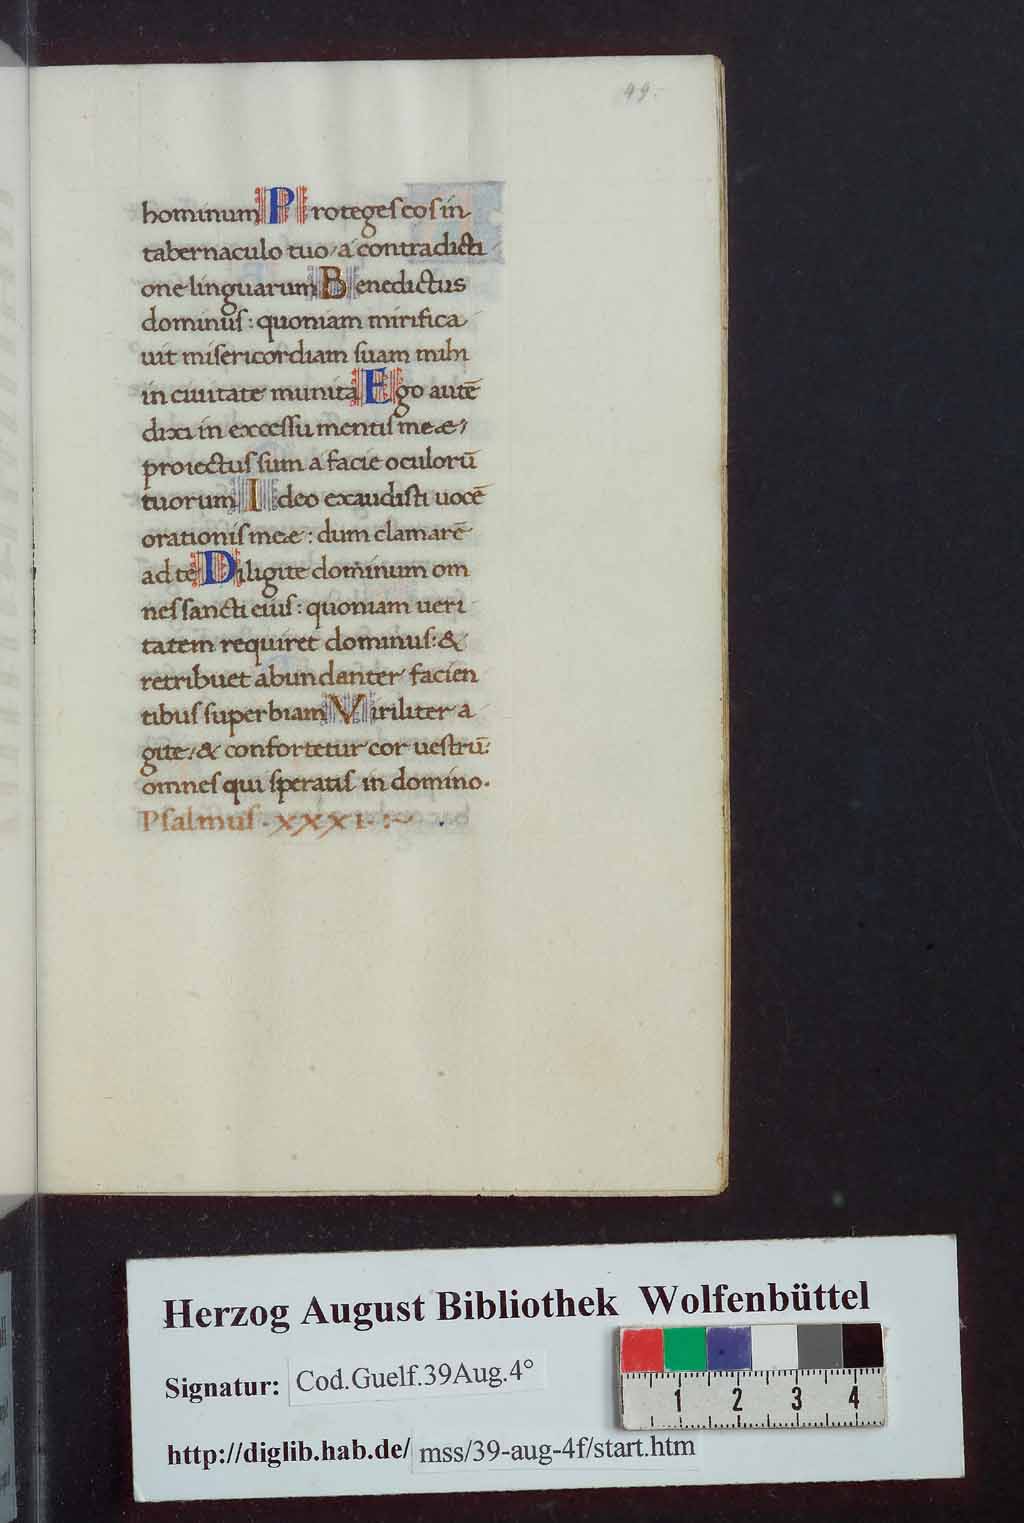 49.
hominum Proteges eos in
tabernaculo tuo, a contradicti
one linguarum Benedictus
dominus: quoniam mirifica
uit misericordiam suam mihi
in ciuitate munita Ego autē
dixi in excessu mentis meae,
proiectus sum a facie oculorū
tuorum Ideo exaudisti uocē
orationis meae: dum clamarē
ad te Diligite dominum om
nes sancti eius: quoniam ueri
tatem requiret dominus: &
retribuet abundanter facien
tibus superbiam Viriliter a
gite, & confortetur cor uestrū:
omnes qui speratis in domino.
Psalmus. XXXI. :~
Herzog August Bibliothek Wolfenbüttel
Signatur: Cod.Guelf.39Aug.4°
1 2 3 4
http://diglib.hab.de/ mss/39-aug-4f/start.htm